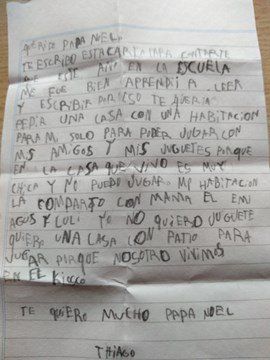 QUERIDO PAPA NOEL
TE ESCRIBO ESTA CARTA PARA CONTARTE
QUE ESTE AÑO EN LA ESCUELA
ME FUE BIEN APRENDI A LEER
Y ESCRIBIR POR ESO TE QUERIA
PEDIR UNA CASA CON UNA HABITACION
PARA MI SOLO PARA PODER JUGAR CON
MIS AMIGOS Y MIS JUGUETES PORQUE
EN LA CASA QUE VIVO ES MUY
CHICA Y NO PUEDO JUGAR MI HABITACION
LA COMPARTO CON MAMA EL EMI
AGOS Y LULI YO NO QUIERO JUGUETE
QUIERO UNA CASA CON PATIO PARA
JUGAR PORQUE NOSOTRO VIVIMOS
EN EL KIOSCO
TE QUIERO MUCHO PAPA NOEL
THIAGO